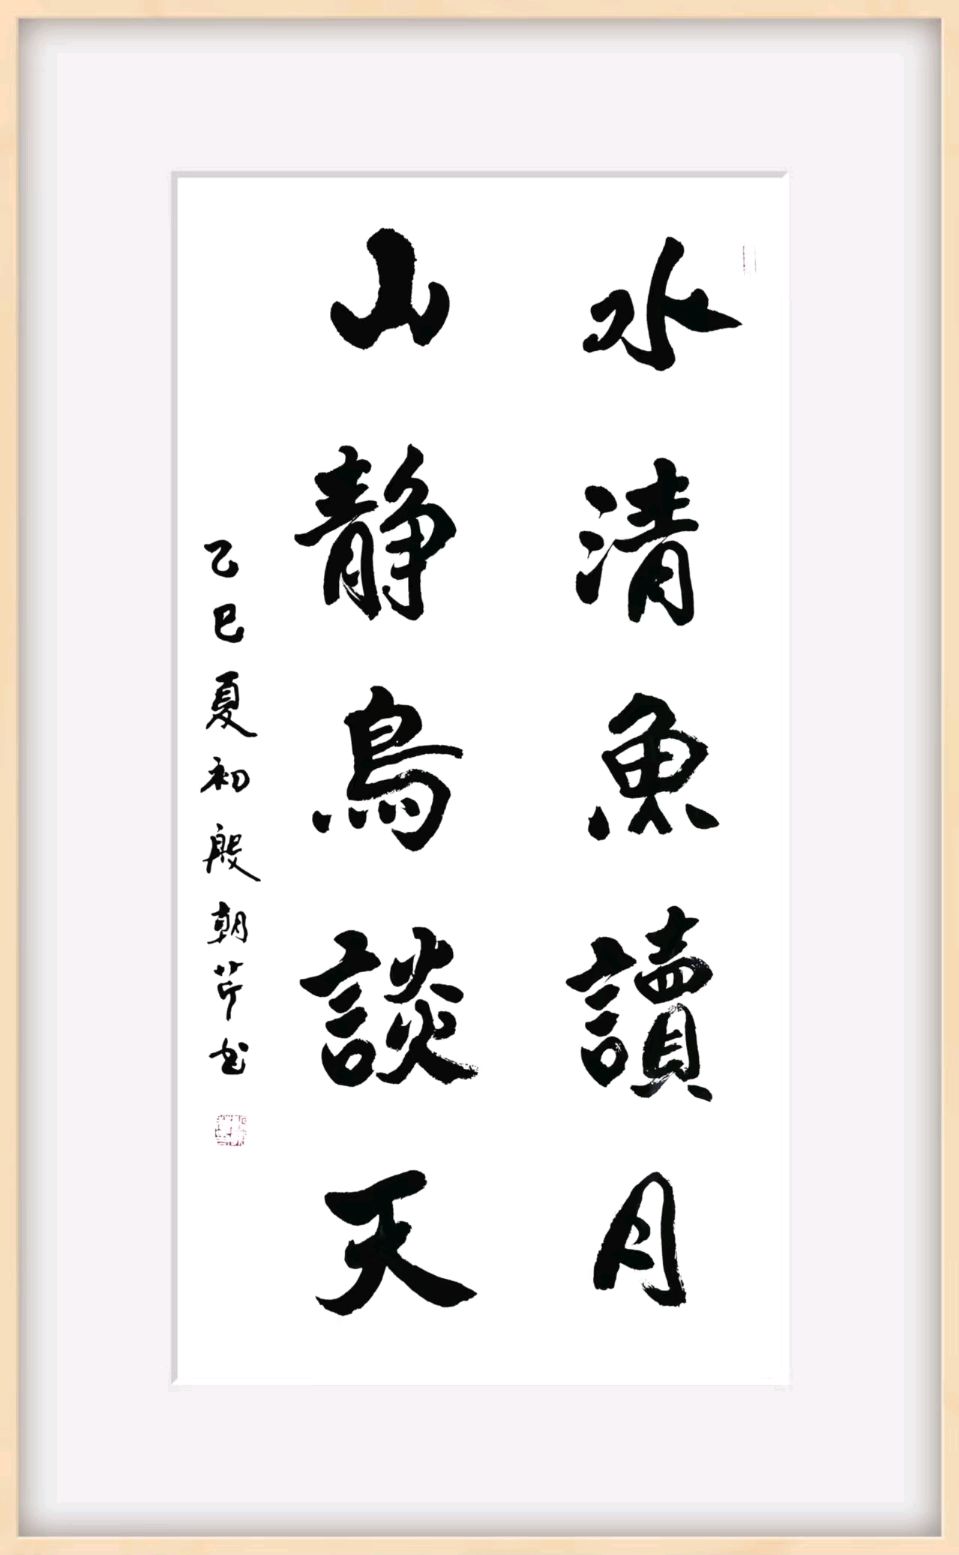 水清魚讀月
山静鳥談天
乙巳夏初殷朝芹书